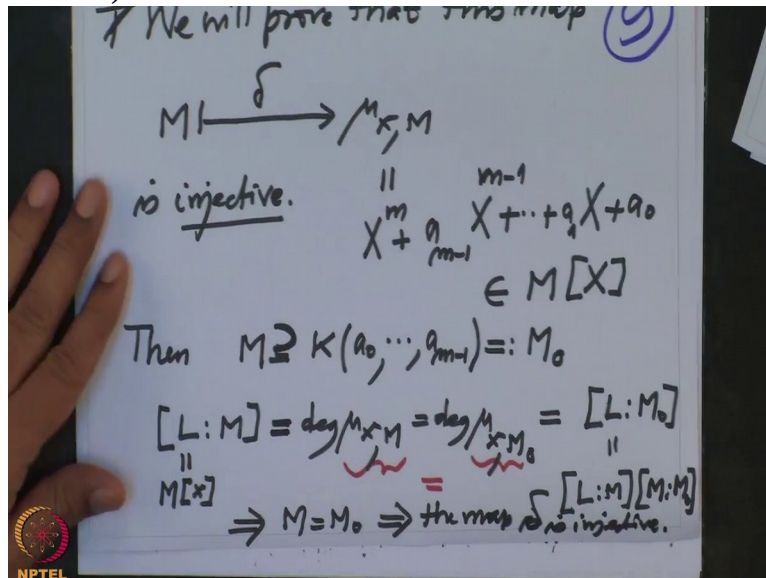 We will prove that this map (9)
M ⟼ μ_{x,M}   δ
is injective. = X^m + a_{m-1} X^{m-1} + ... + a_1 X + a_0
∈ M[X]
Then M ⊇ K(a_0, ..., a_{m-1}) =: M_0
[L:M] = deg μ_{x,M} = deg μ_{x,M_0} = [L:M_0]
= = =
M[x] [L:M][M:M_0]
⇒ M = M_0 ⇒ the map δ is injective.
NPTEL